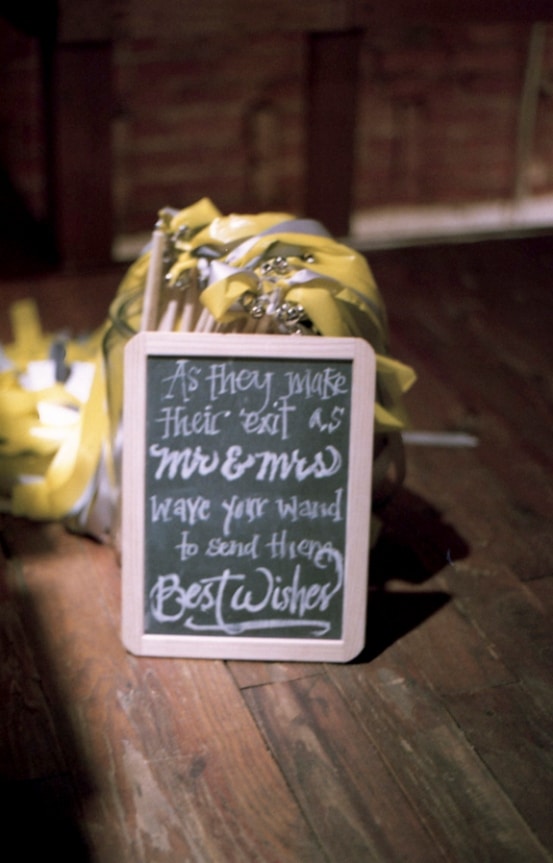 As they make
their exit as
Mr & Mrs
wave your wand
to send them
Best Wishes